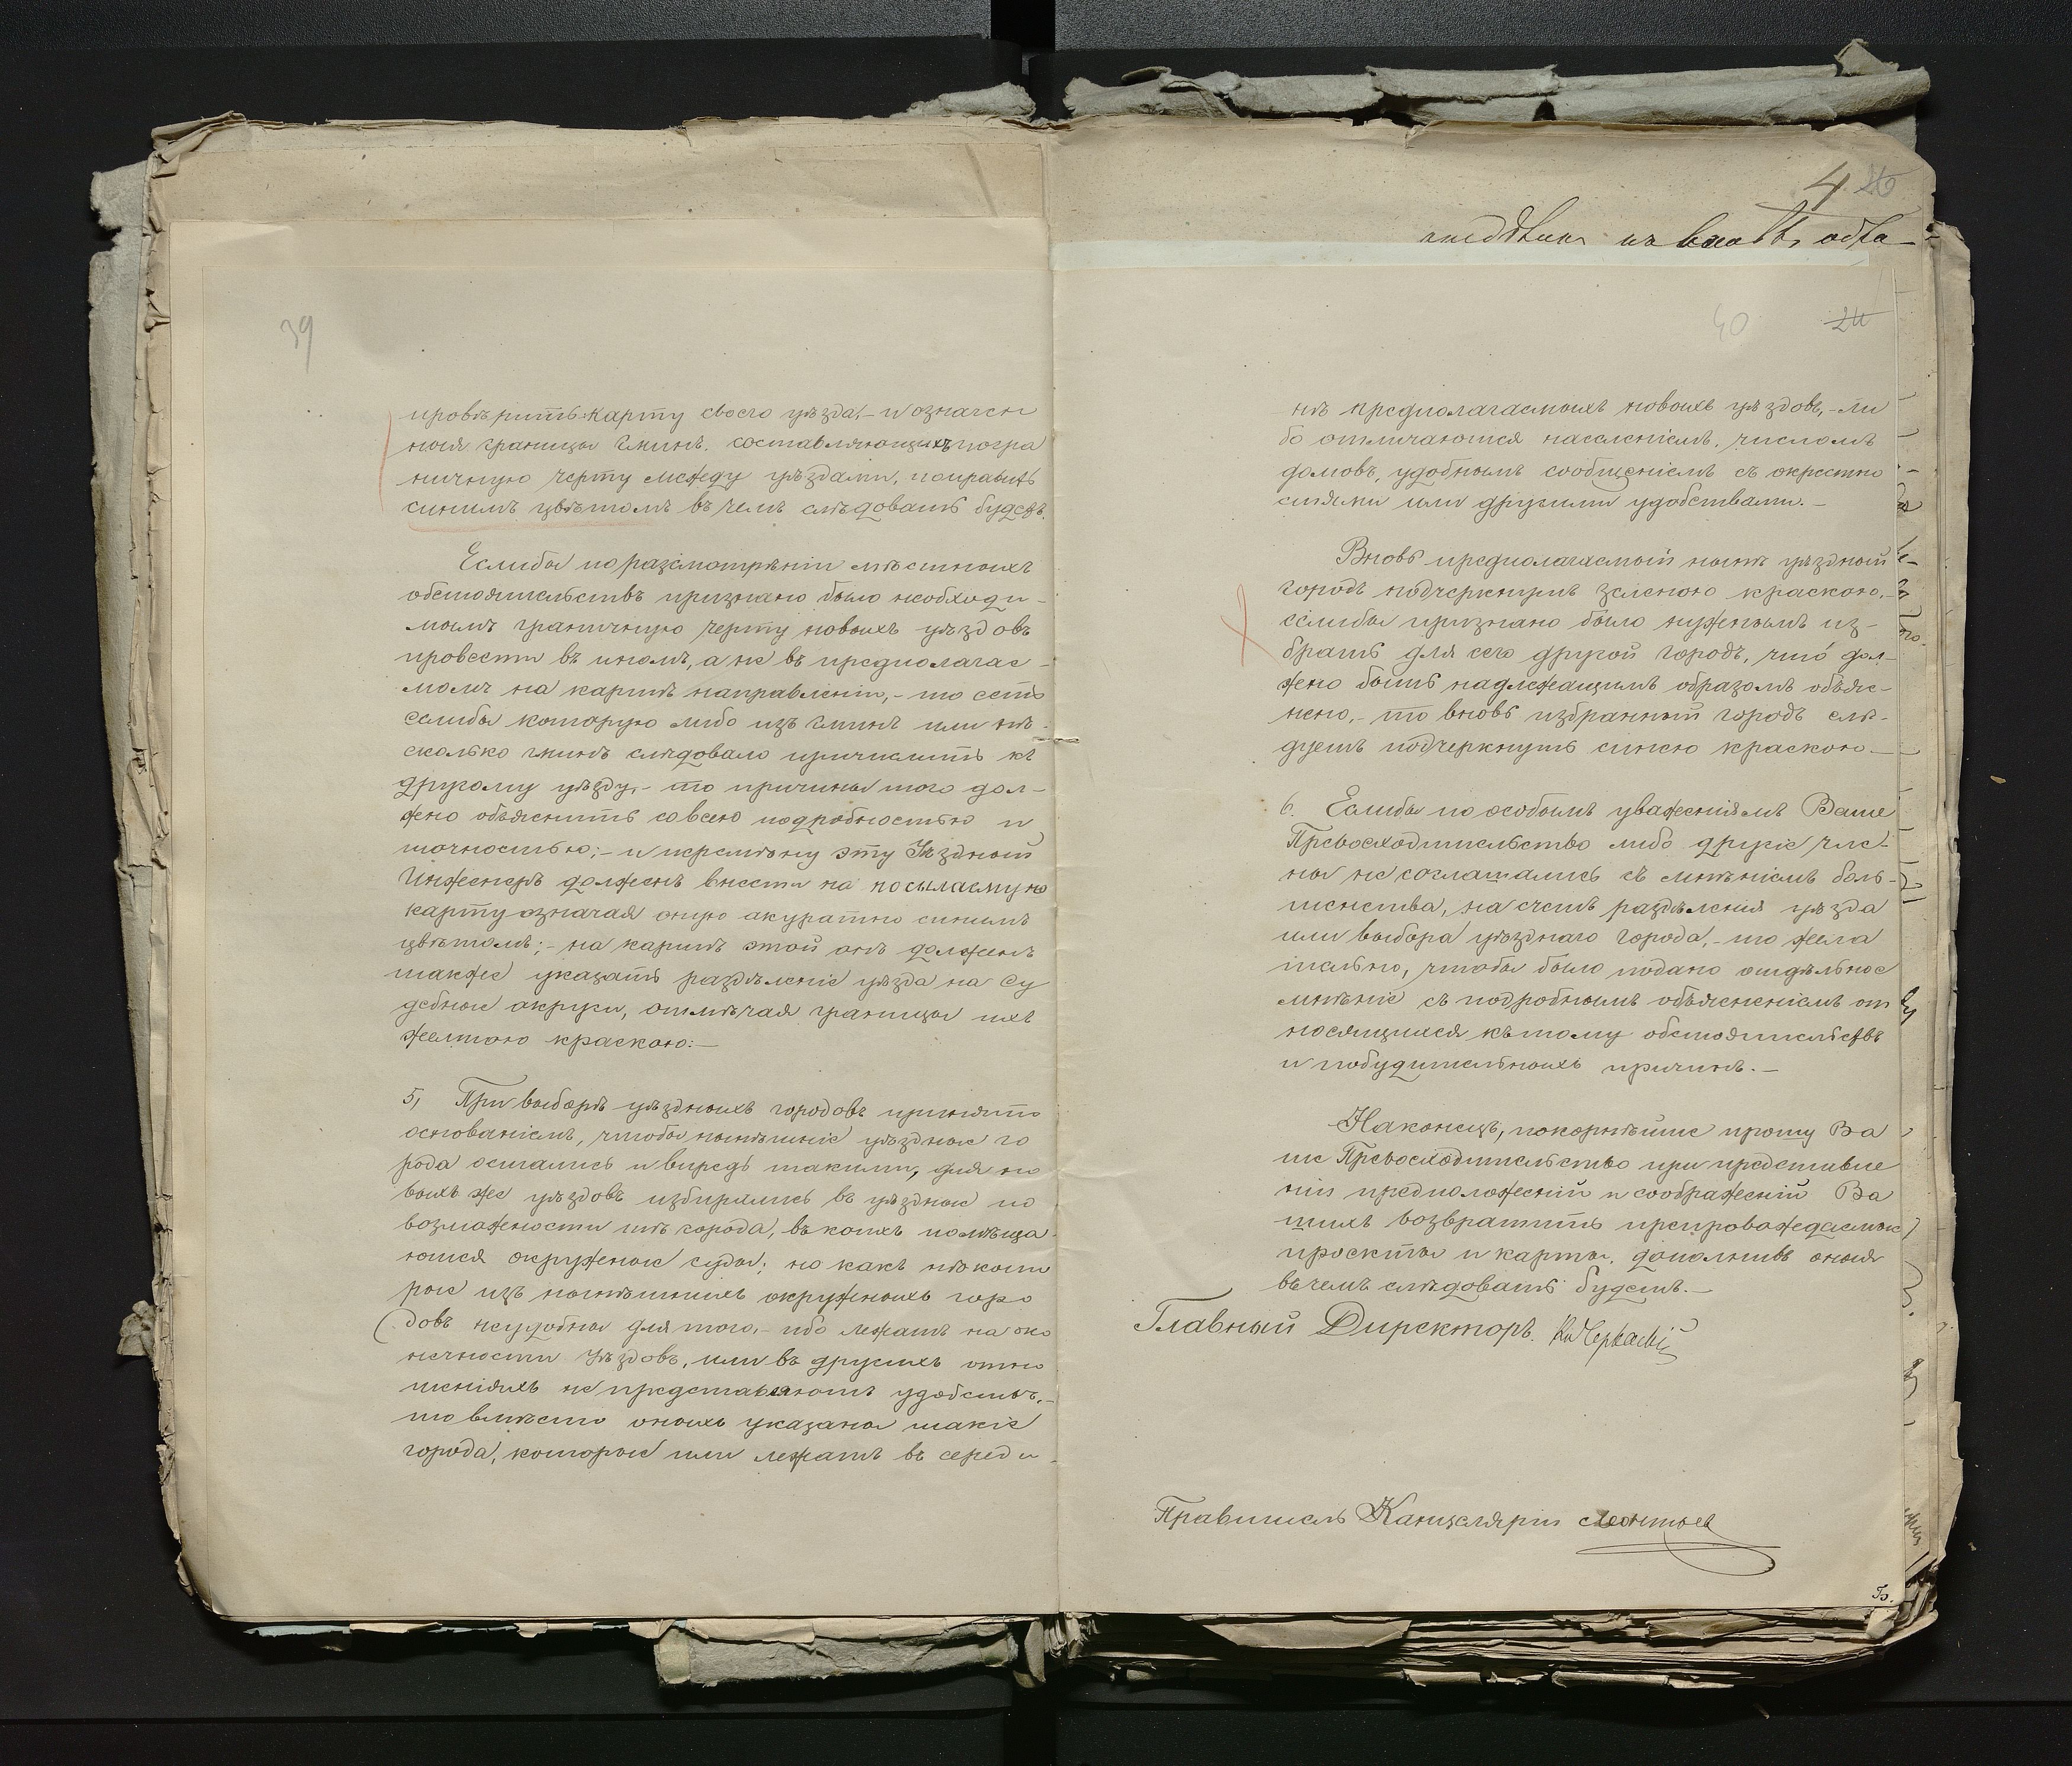 39
провѣрить карту своего уѣзда,- и означен
ныя границы гминъ. составляющихъ погра
ничную черту между уѣздами, поправить
синимъ цвѣтомъ въ чемъ слѣдовать будетъ.
Еслибы по разсмотрѣніи мѣстныхъ
обстоятельствъ признано было необходи-
мымъ граничную черту новыхъ уѣздовъ
провести въ иномъ, а не въ предполагае-
момъ на картѣ направленіи,- то есть
еслибы которую либо изъ гминъ или нѣ-
сколько гминъ слѣдовало причислить къ
другому уѣзду,- то причины того дол-
жно объяснить со всею подробностью и
точностью;- и перемѣну эту Уѣздный
Инженеръ долженъ внести на посылаемую
карту означая оную акуратно синимъ
цвѣтомъ;- на картѣ этой онъ долженъ
также указать раздѣленіе уѣзда на Су
дебные округи, отмѣчая границы ихъ
желтою краскою:—
5, При выборѣ уѣздныхъ городовъ принято
основаніемъ, чтобы нынѣшніе уѣздные го
рода остались и впредь такими, для но
выхъ же уѣздовъ избирались въ уѣздные по
возможности тѣ города, въ коихъ помѣща-
ются окружные суды; но какъ нѣкото
рые изъ нынѣшнихъ окружныхъ горо
довъ неудобны для того,- ибо лежатъ на око
нечности Уѣздовъ, или въ другихъ отно
шеніяхъ не представляютъ удобствъ,-
то вмѣсто оныхъ указаны такіе
города, которые или лежатъ въ середи-
4
40
24
нѣ предполагаемыхъ новыхъ уѣздовъ,- ли
бо отличаются населеніемъ, числомъ
домовъ, удобнымъ сообщеніемъ съ окрестно
стями или другими удобствами.—
Вновь предполагаемый нынѣ уѣздный
городъ подчеркнутъ зеленою краскою,-
еслибы признано было нужнымъ из-
брать для сего другой городъ, что́ дол-
жно быть надлежащимъ образомъ объяс-
нено,- то вновь избранный городъ слѣ-
дуетъ подчеркнуть синею краскою.—
6. Еслибы по особымъ уваженіямъ Ваше
Превосходительство либо другіе чле-
ны не соглашались съ мнѣніемъ боль-
шинства, на счетъ раздѣленія уѣзда
или выбора уѣзднаго города,- то жела
тельно, чтобы было подано отдѣльное
мнѣніе съ подробнымъ объясненіемъ от
носящихся къ тому обстоятельствъ
и побудительныхъ причинъ.—
Наконецъ, покорнѣйше прошу Ва
ше Превосходительство при представле
ніи предположеній и соображеній Ва
шихъ возвратить препровождаемые
проекты и карты, дополнивъ оныя
въ чемъ слѣдовать будетъ.—
Главный Директоръ. Кн Черкаскій
Правитель Канцеляріи Леонтьев